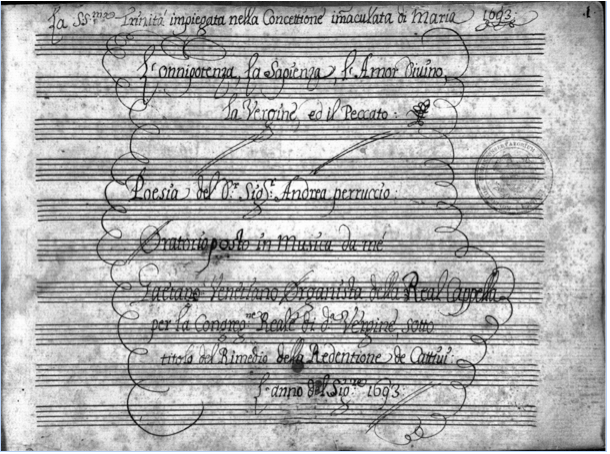 La SS.ma Trinità impiegata nella Concettione im̃aculata di Maria 1693.
1
L'onnipotenza, la Sapienza, l'Amor Divino,
la Vergine, ed il Peccato:
Poesia del D.r Sig.r Andrea perruccio:
Oratorio posto in Musica da me
Gaetano Venetiano Organista della Real Cappella
per la Congreg.ne Reale di d.a Vergine sotto
titolo del Rimedio della Redentione de Cattivi:
l'anno del Sig.re 1693: